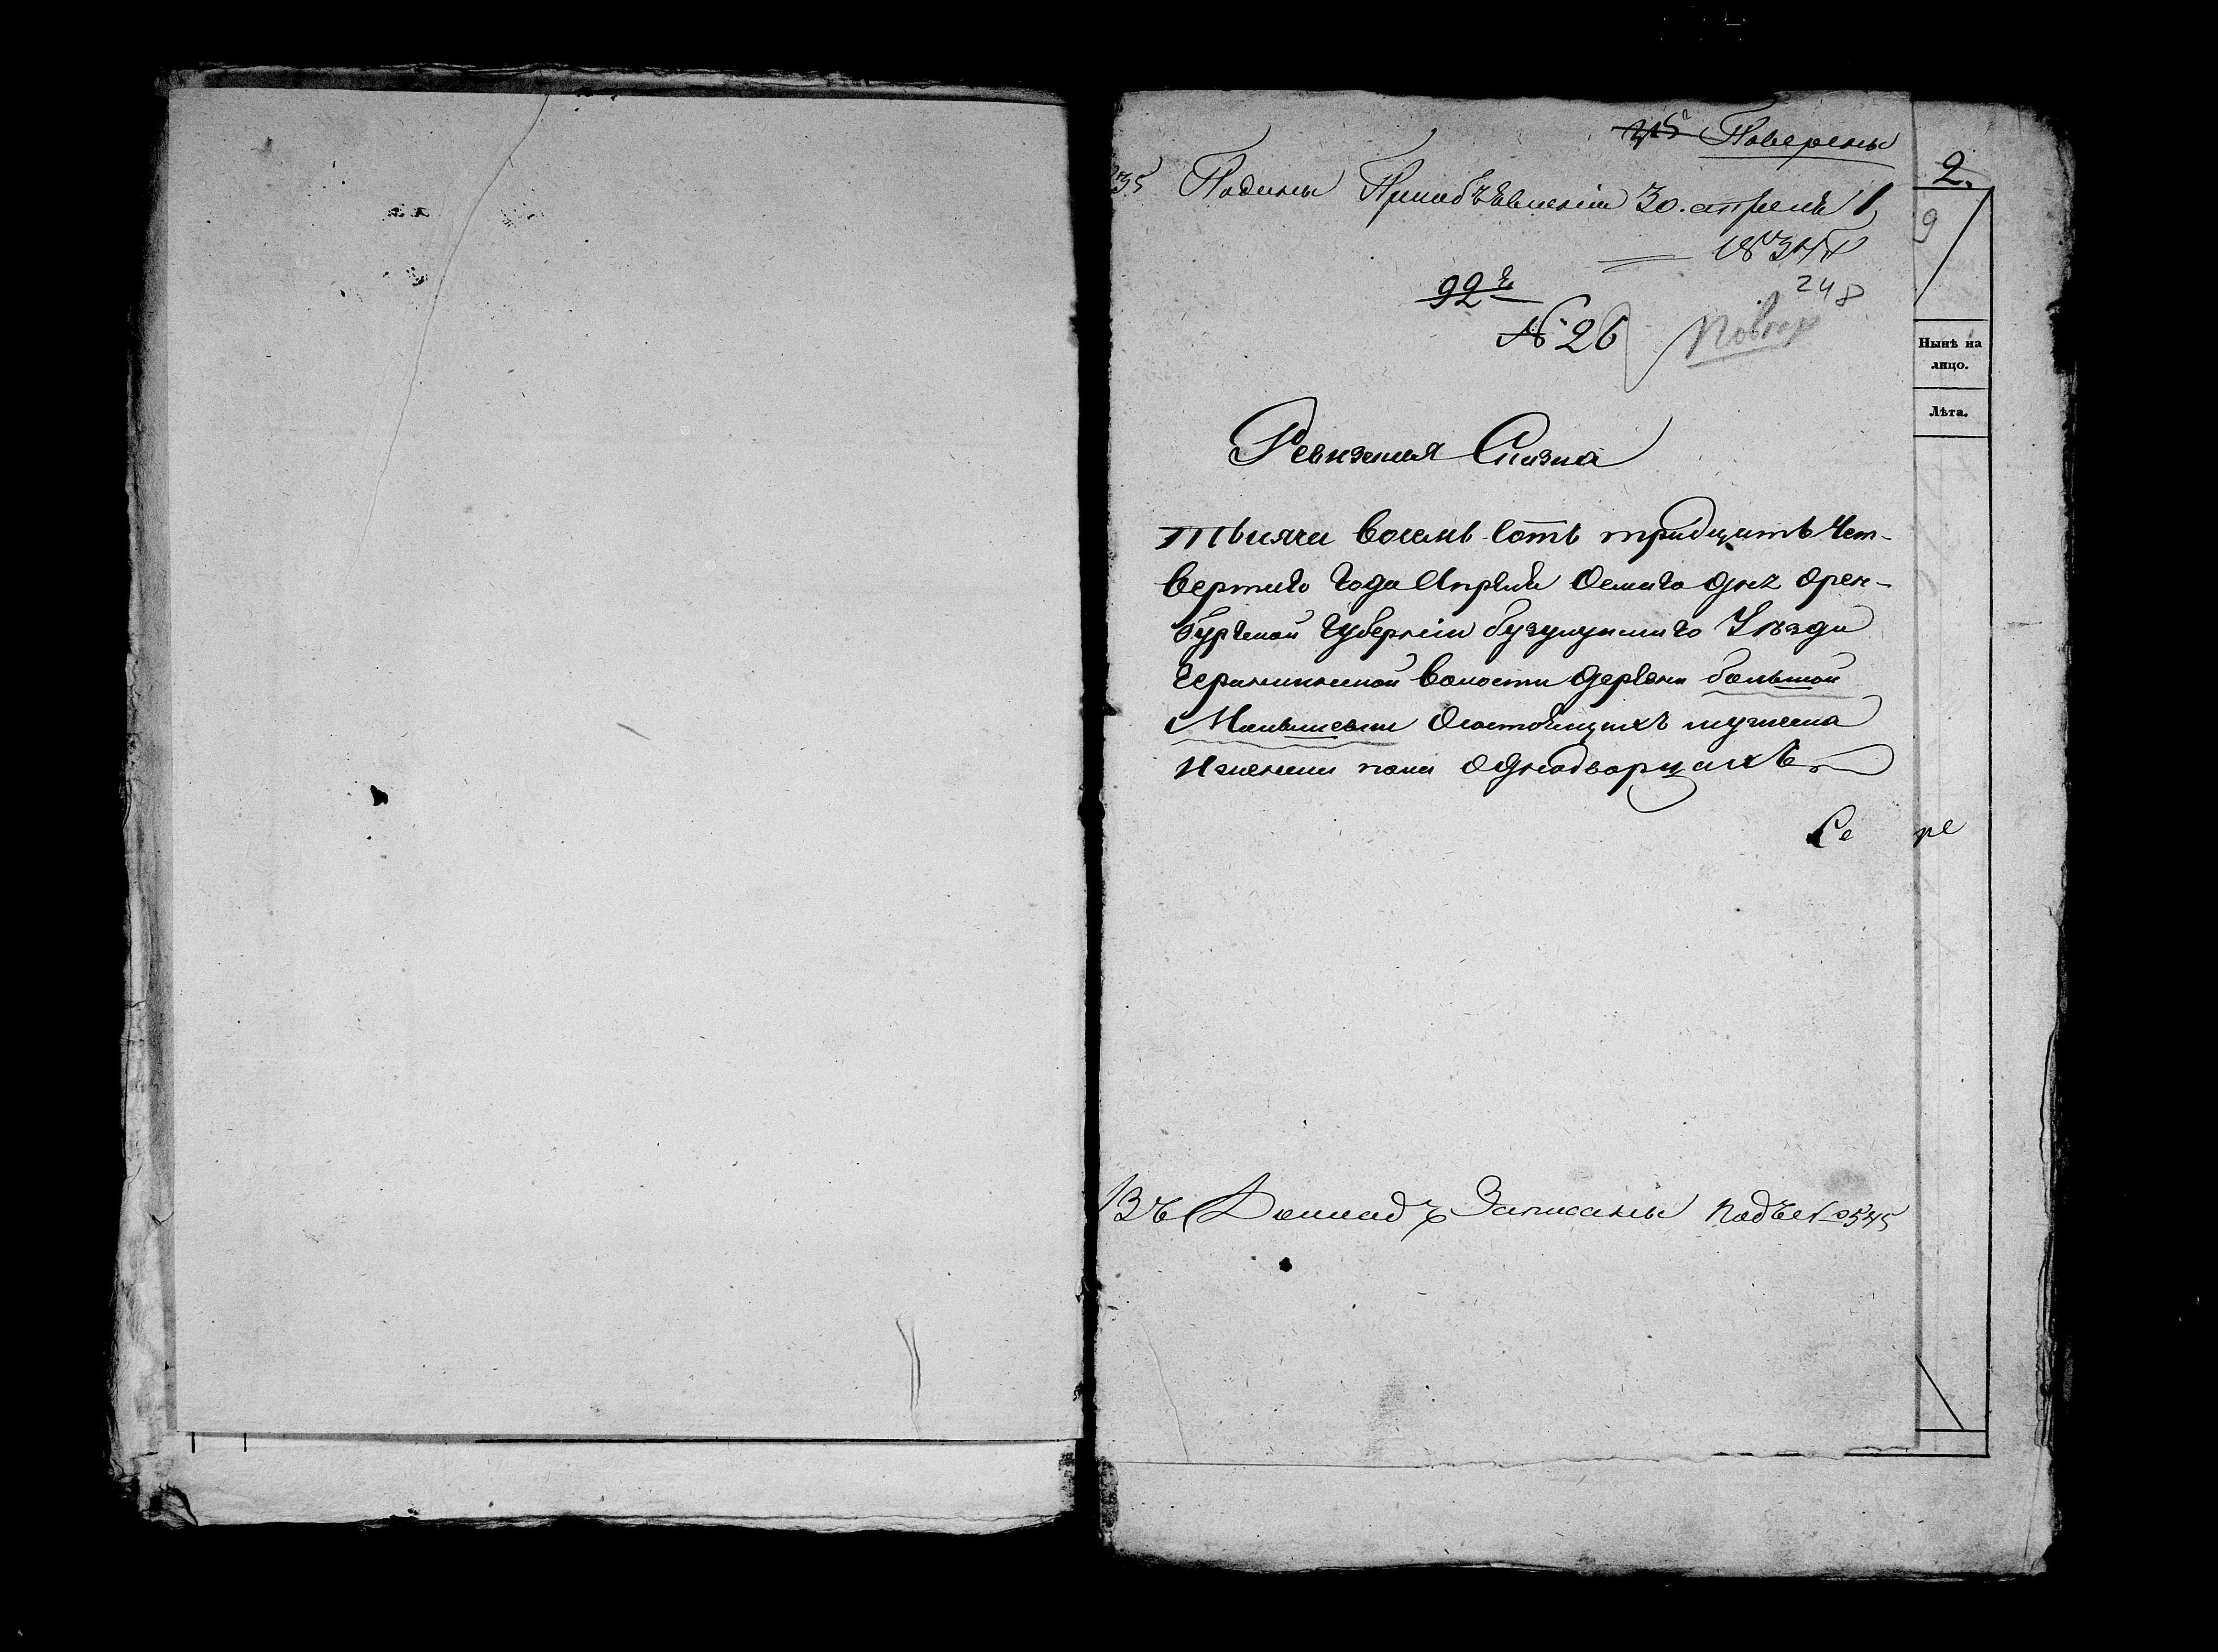 Поверены
2.
Подана При объявленіи 30. апреля
1834
9
248
92
№ 26 Повер
Нынѣ на
лицо.
Лѣта.
Ревизская Сказка
тысяча восемь сотъ тридцать чет-
вертаго года Апреля Осмаго дня Орен-
бургской губерніи бузулукскаго Уезда
волости деревни большой
Малышевки Осостоящихъ мужеска
Иженска пола однодворцахъ
Се ре
Въ Записаны подъ № 545